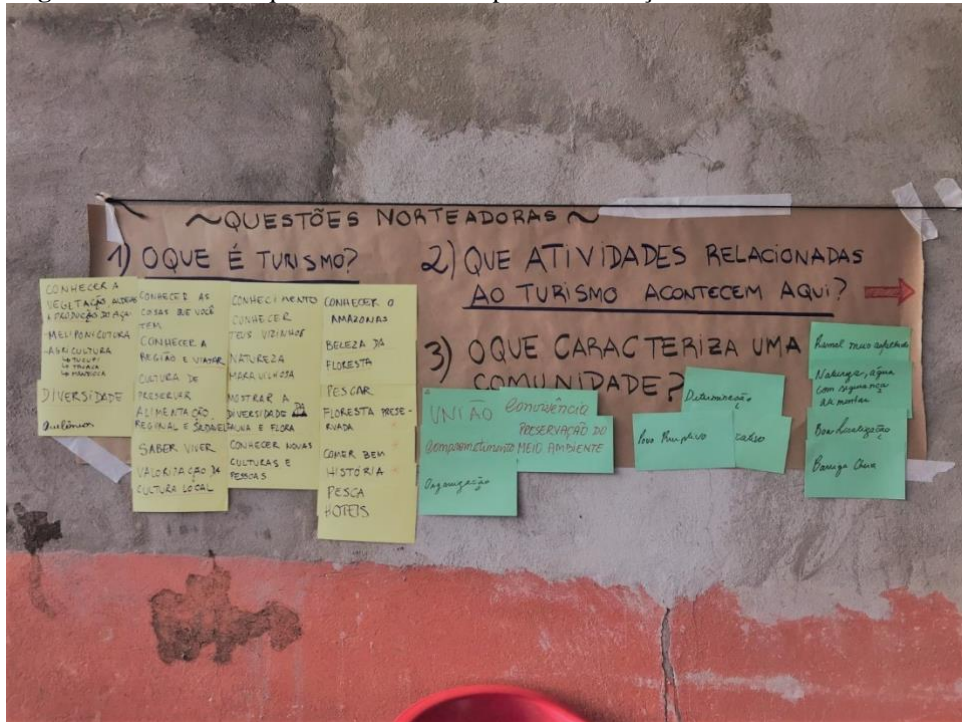 ~QUESTÕES NORTEADORAS~
1) OQUE É TURISMO?
2) QUE ATIVIDADES RELACIONADAS
AO TURISMO ACONTECEM AQUI?
3) OQUE CARACTERIZA UMA
COMUNIDADE?
CONHECER A
VEGETAÇÃO, ALDEIAS
A PRODUÇÃO DO AÇAI
MELIPONICUTURA
-AGRICULTURA
TUCUPI
MANDIOCA
DIVERSIDADE
Quilômios
CONHECER AS
COSAS QUE VOCÊ
TEM
CONHECER A
REGIÃO E VIATAR
CULTURA DE
PRESERVAR
ALIMENTAÇÃO
REGINAL E
SABER VIVER
VALORIZAÇÃO DA
CULTURA LOCAL
CONHECIMENTO
CONHECER
TEUS VIZINHOS
NATUREZA
MARAVILHOSA
MOSTRAR A
DIVERSIDADE DA
FAUNA E FLORA
CONHECER NOVAS
CULTURAS E
PESSOAS
CONHECER O
AMAZONAS
BELEZA DA
FLORESTA
PESCAR
FLORESTA PRESE-
RVADA
COMER BEM
HISTÓRIA
PESCA
HOTEIS
UNIÃO
Convivência
Comprometimento
PRESERVAÇÃO DO
MEIO AMBIENTE
Organização
Determinação
Povo Receptivo
Ramal
Natureza, água
com segurança
Boa localização
Barriga Cheia